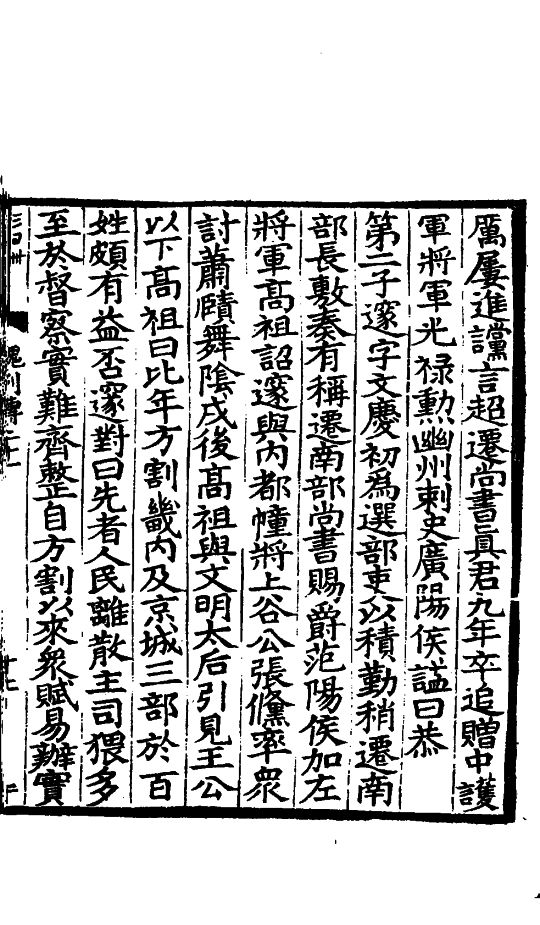 厲屢進讜言超遷尚書眞君九年卒追贈中護
軍將軍光祿勲幽州刺史廣陽侯謚曰恭
第二子邃字文慶初爲選部吏以積勤稍遷南
部長敷奏有稱遷南部尚書賜爵范陽侯加左
將軍髙祖詔邃與内都幢將上谷公張儵率衆
討蕭賾舞隂戍後髙祖與文明太后引見王公
以下髙祖曰比年方割畿内及京城三部於百
姓頗有益否邃對曰先者人民離散主司猥多
至於督察實難齊整自方割以來衆賦易辦實